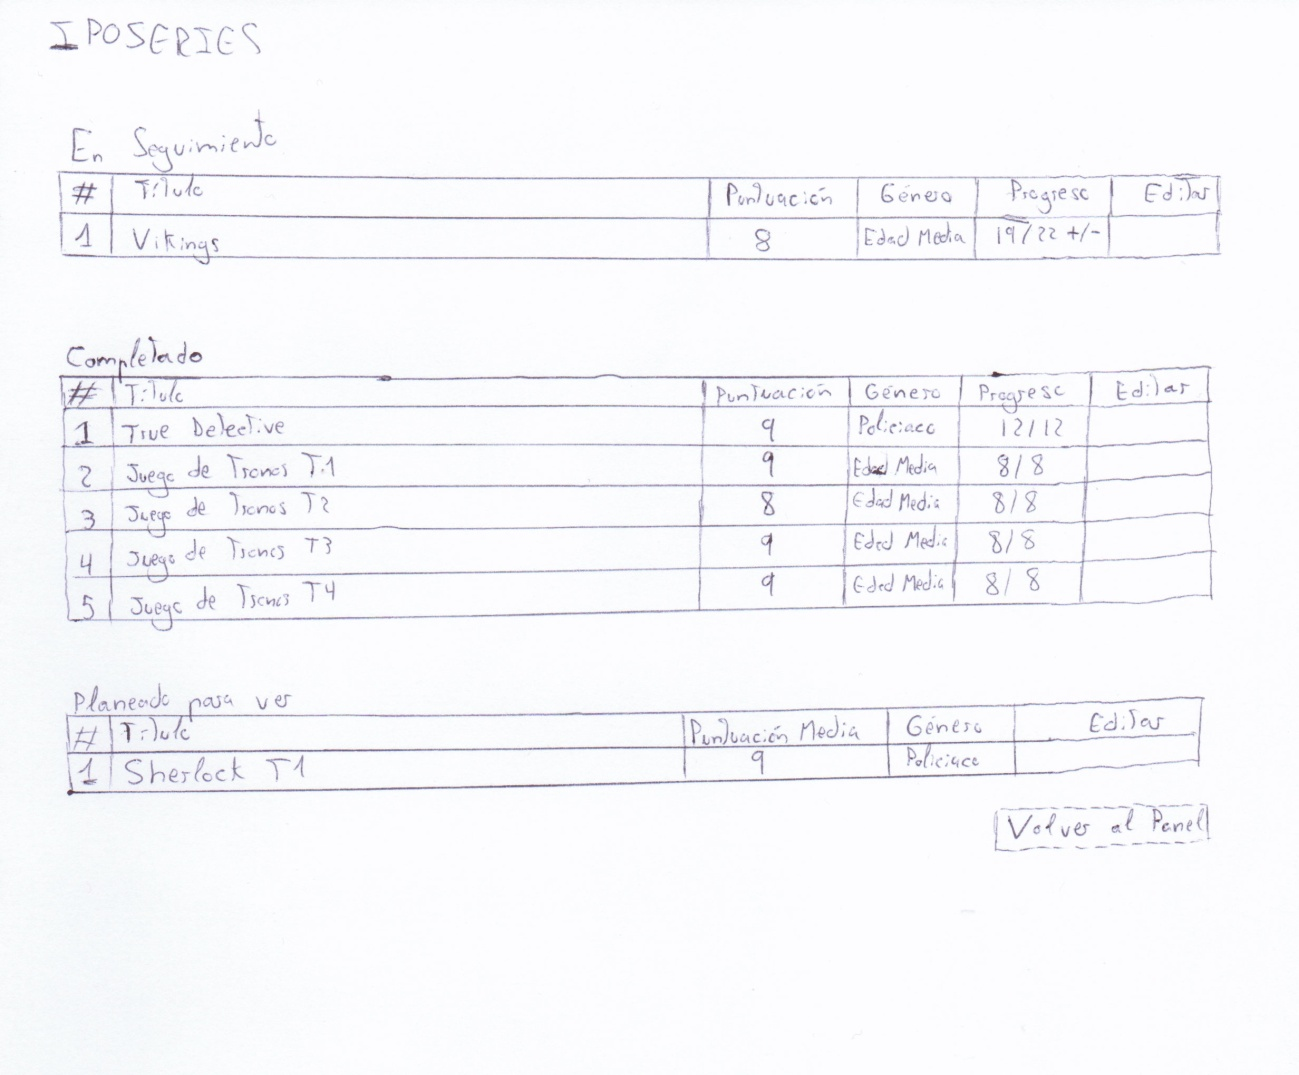 IPOSERIES
En Seguimiento
# Título Puntuación Género Progreso Editar
1 Vikings 8 Edad Media 19/22 +/-
Completado
# Título Puntuación Género Progreso Editar
1 True Detective 9 Policiaco 12/12
2 Juego de Tronos T.1 9 Edad Media 8/8
3 Juego de Tronos T2 8 Edad Media 8/8
4 Juego de Tronos T3 9 Edad Media 8/8
5 Juego de Tronos T4 9 Edad Media 8/8
Planeado para ver
# Título Puntuación Media Género Editar
1 Sherlock T1 9 Policiaco
Volver al Panel